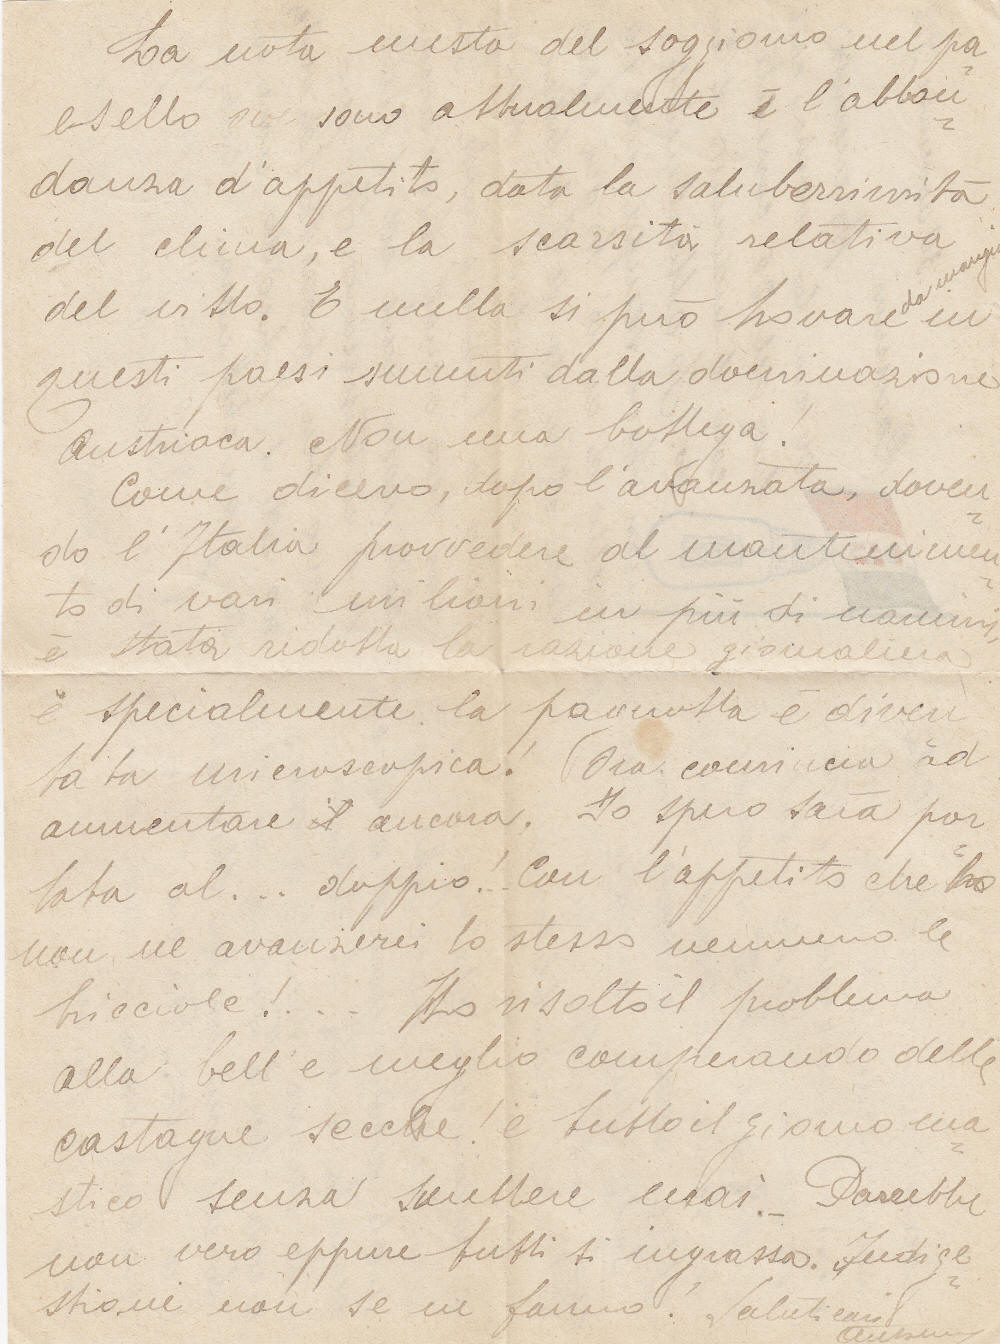 La nota mesta del soggiorno nel pa=
esello ove sono attualmente è l'abbon=
danza d'appetito, data la saluberrimità
del clima, e la scarsità relativa
del vitto. E nulla si può trovare da mangiare in
questi paesi smunti dalla dominazione
Austriaca. Non una bottega!
Come dicevo, dopo l'avanzata, doven=
do l'Italia provvedere al mantenimen=
to di vari milioni in più di uomini,
è stata ridotta la razione giornaliera
e specialmente la pagnotta è diven
tata microscopica! Ora comincia ad
aumentare ancora. Io spero sarà por=
tata al... doppio! Con l'appetito che ho
non ne avanzerei lo stesso nemmeno le
bricciole!.... Ho risolto il problema
alla bell'e meglio comperando delle
castagne secche! e tutto il giorno ma=
stico senza smettere mai. Parrebbe
non vero eppure tutti si ingrassa. Indige=
stioni non se ne fanno! Saluti cari